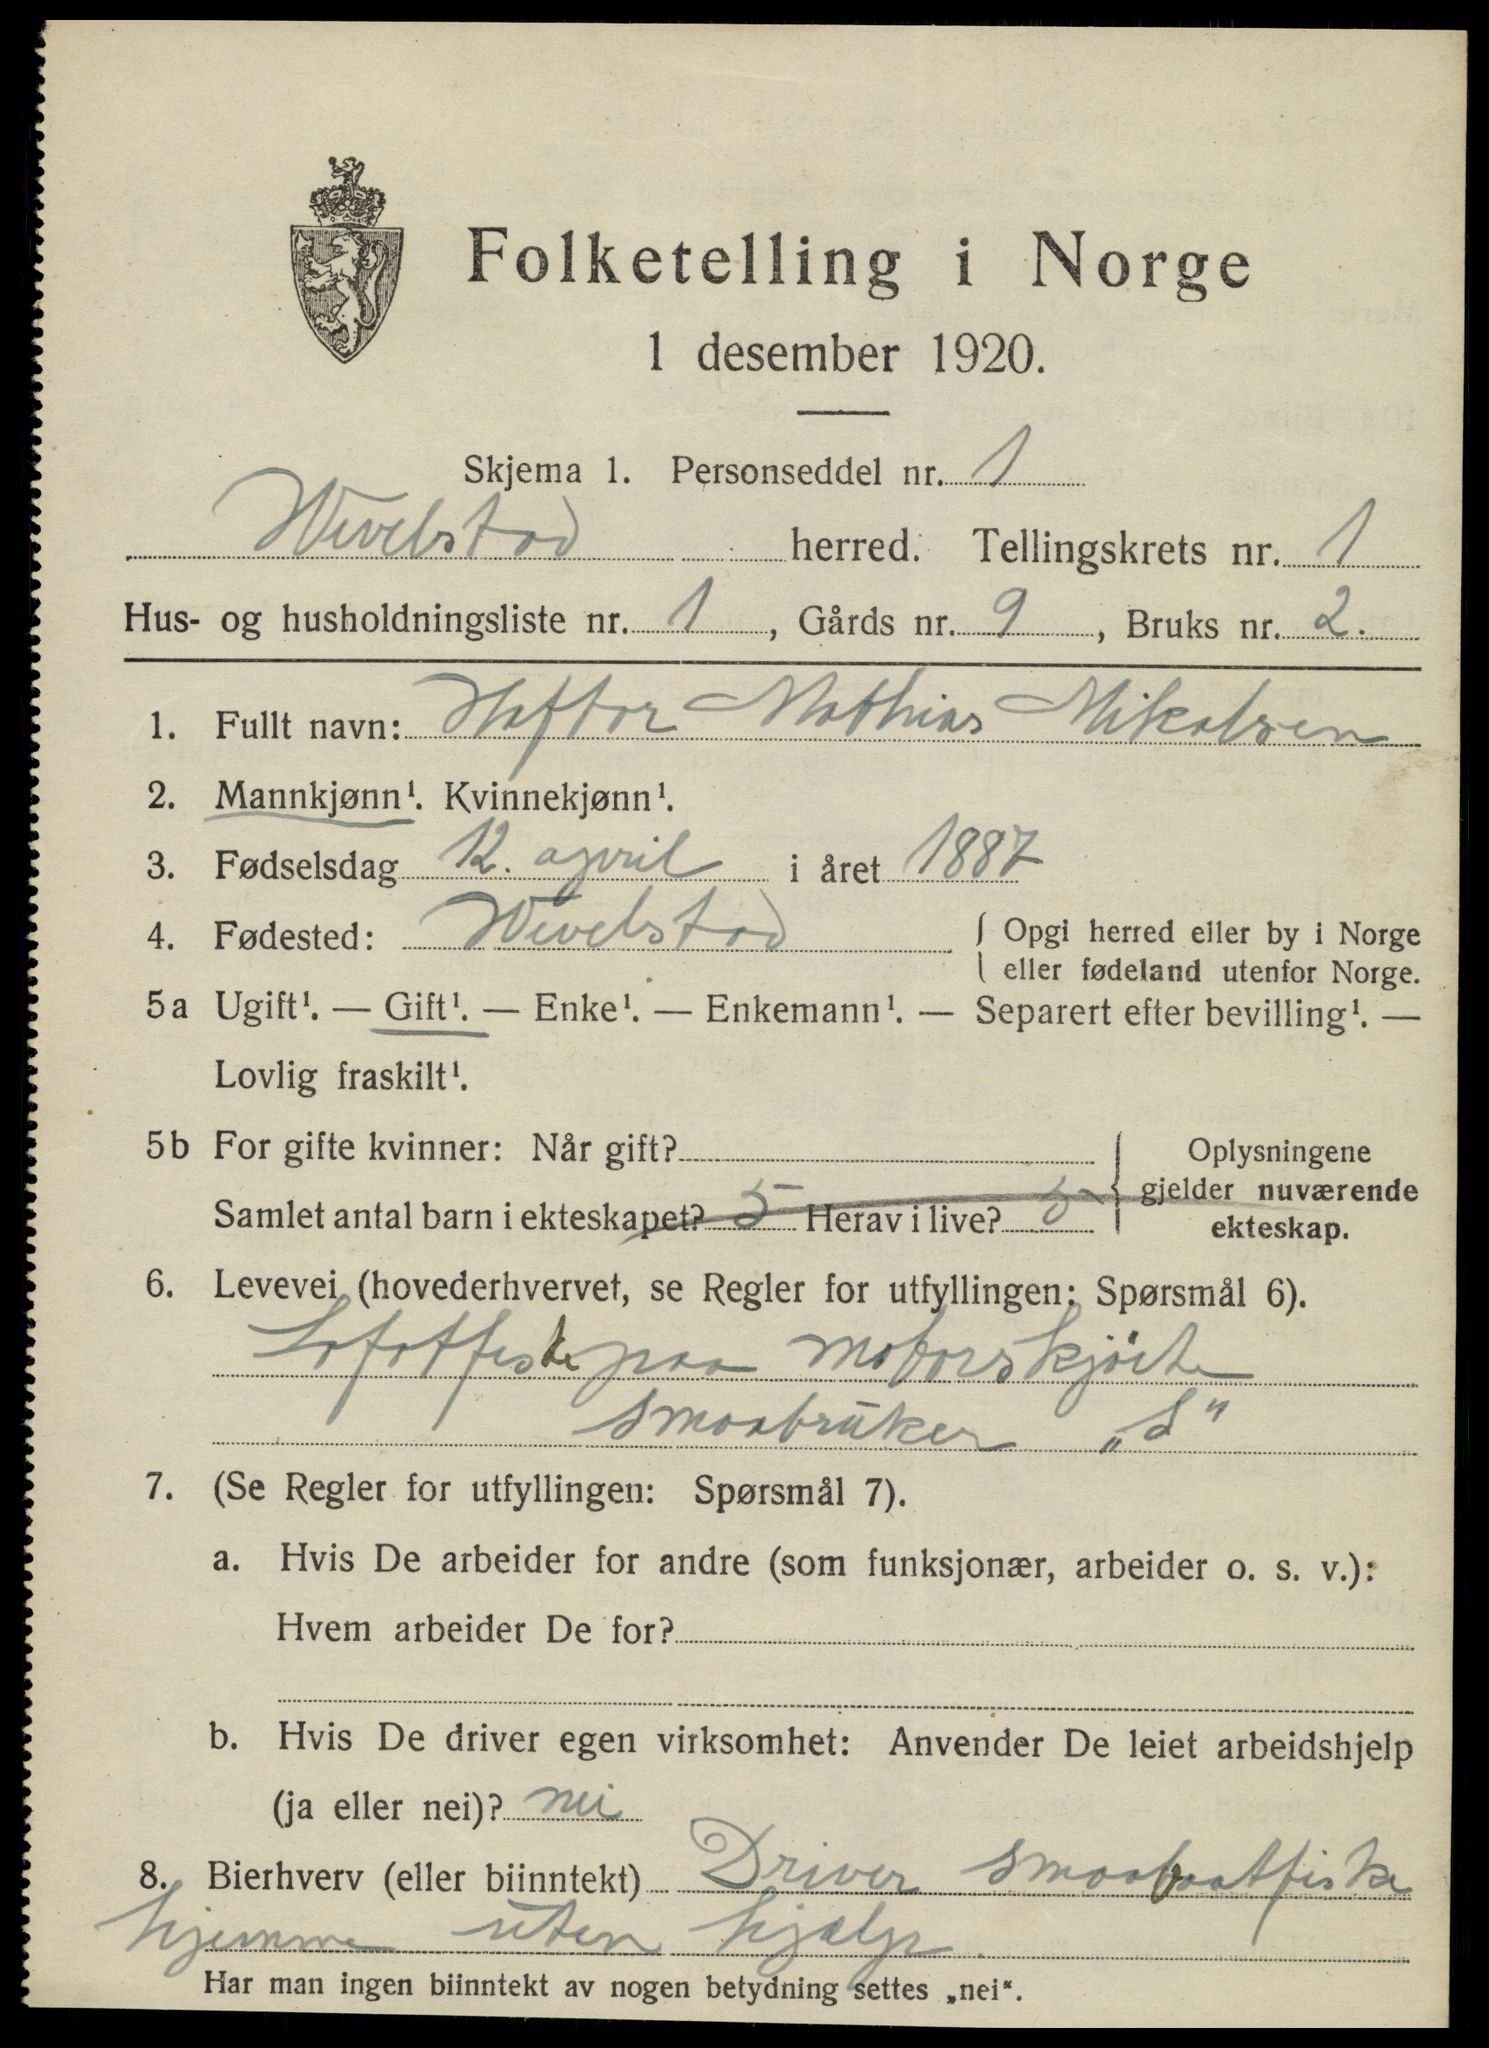 Folketelling i Norge
1 desember 1920.
Skjema 1. Personseddel nr. 1
Wevelstad herred. Tellingskrets nr. 1
Hus- og husholdningsliste nr. 1, Gårds nr. 9, Bruks nr. 2.
1. Fullt navn: Haftor Mathias Mikalsen
2. Mannkjønn¹. Kvinnekjønn¹.
3. Fødselsdag 12. april i året 1887
4. Fødested: Wevelstad { Opgi herred eller by i Norge
eller fødeland utenfor Norge.
5a Ugift¹. — Gift¹. — Enke¹. — Enkemann¹. — Separert efter bevilling¹. —
Lovlig fraskilt¹.
5b For gifte kvinner: Når gift?
Samlet antal barn i ekteskapet? 5 Herav i live? 5
{ Oplysningene
gjelder nuværende
ekteskap.
6. Levevei (hovederhvervet, se Regler for utfyllingen: Spørsmål 6).
Lofotfiske paa motorskjöite
smaabruker „S“
7. (Se Regler for utfyllingen: Spørsmål 7).
a. Hvis De arbeider for andre (som funksjonær, arbeider o. s. v.):
Hvem arbeider De for?
b. Hvis De driver egen virksomhet: Anvender De leiet arbeidshjelp
(ja eller nei)? nei
8. Bierhverv (eller biinntekt) Driver smaabaatfiske
hjemme uten hjælp.
Har man ingen biinntekt av nogen betydning settes „nei“.